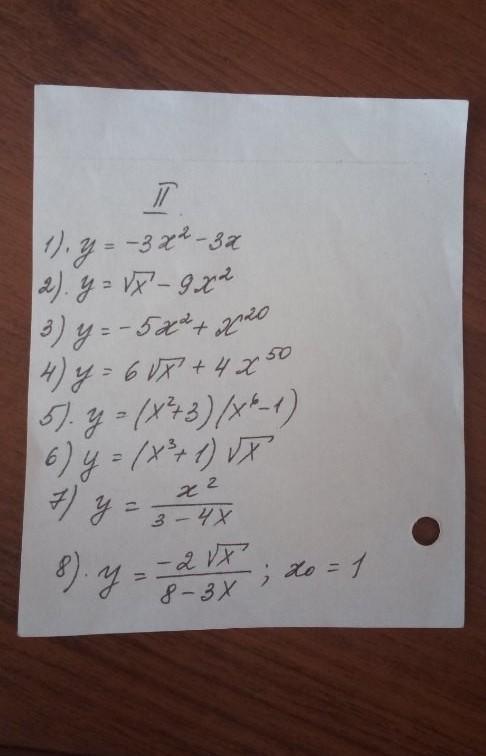 II
1). y = -3x² - 3x
2). y = √x - 9x²
3) y = -5x² + x²⁰
4) y = 6√x + 4x⁵⁰
5). y = (x²+3)(x⁶-1)
6) y = (x³+1)√x
7) y = x² / (3 - 4x)
8). y = -2√x / (8 - 3x) ; x₀ = 1